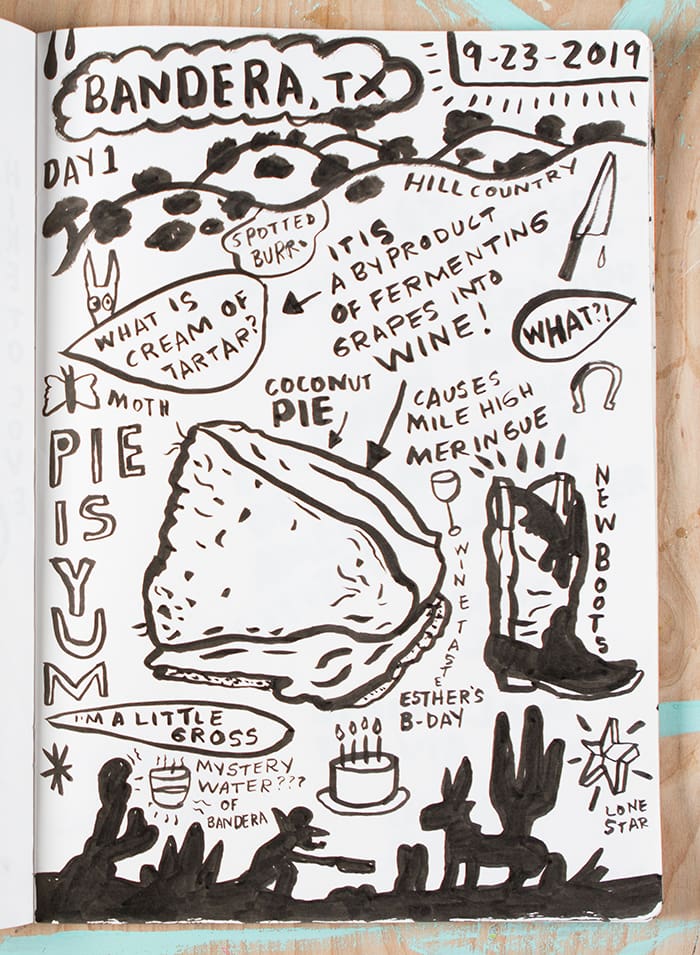 BANDERA, TX
9-23-2019
DAY 1
HILL COUNTRY
SPOTTED
BURRO
WHAT IS
CREAM OF
TARTAR?
IT IS
A BYPRODUCT
OF FERMENTING
GRAPES INTO
WINE!
WHAT?!
MOTH
COCONUT
PIE
CAUSES
MILE HIGH
MERINGUE
PIE
IS
YUM
WINE TASTE
NEW BOOTS
ESTHER'S
B-DAY
I'M A LITTLE
GROSS
MYSTERY
WATER???
OF
BANDERA
LONE
STAR